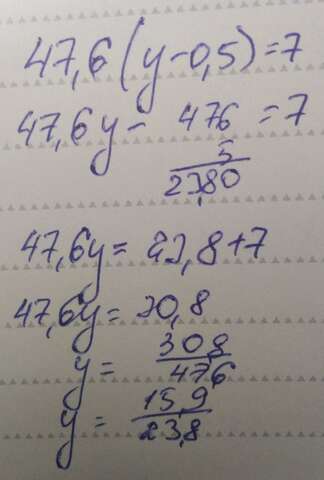 47,6(y-0,5)=7
47,6y- 476 =7
5
23,80
47,6y= 23,8+7
47,6y= 30,8
y= 308/476
y= 15,9/23,8